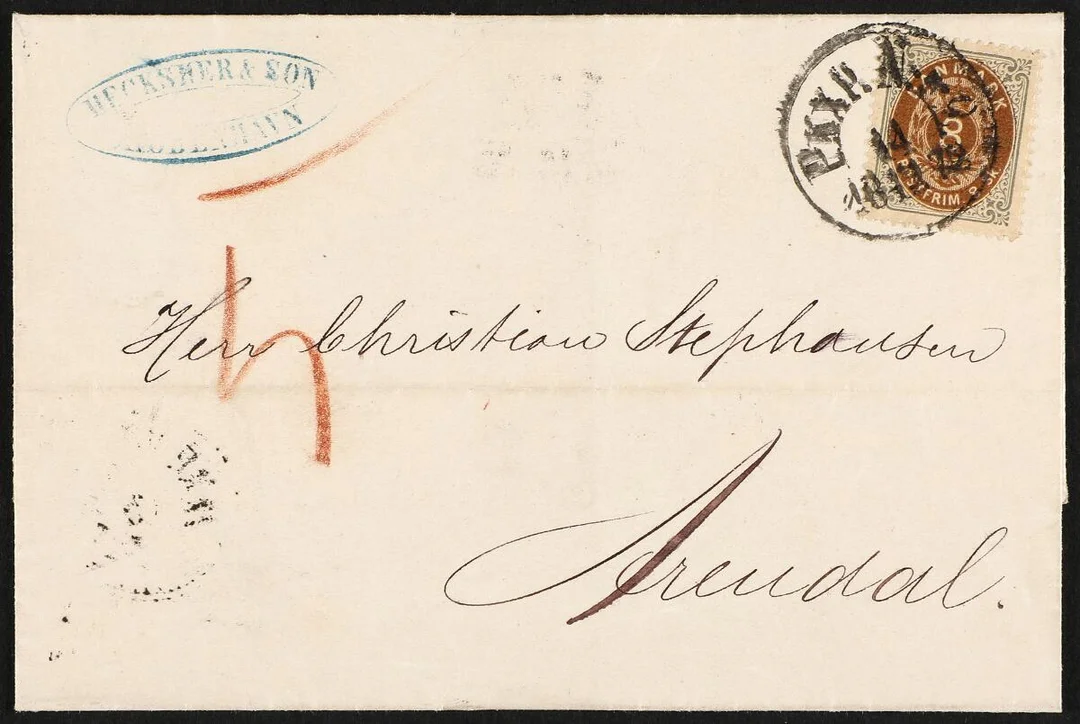 HECKSHER & SON
KJØBENHAVN
DANMARK
8
POSTFRIM. 8 SK
14
Herr Christian Stephansen
Arendal.